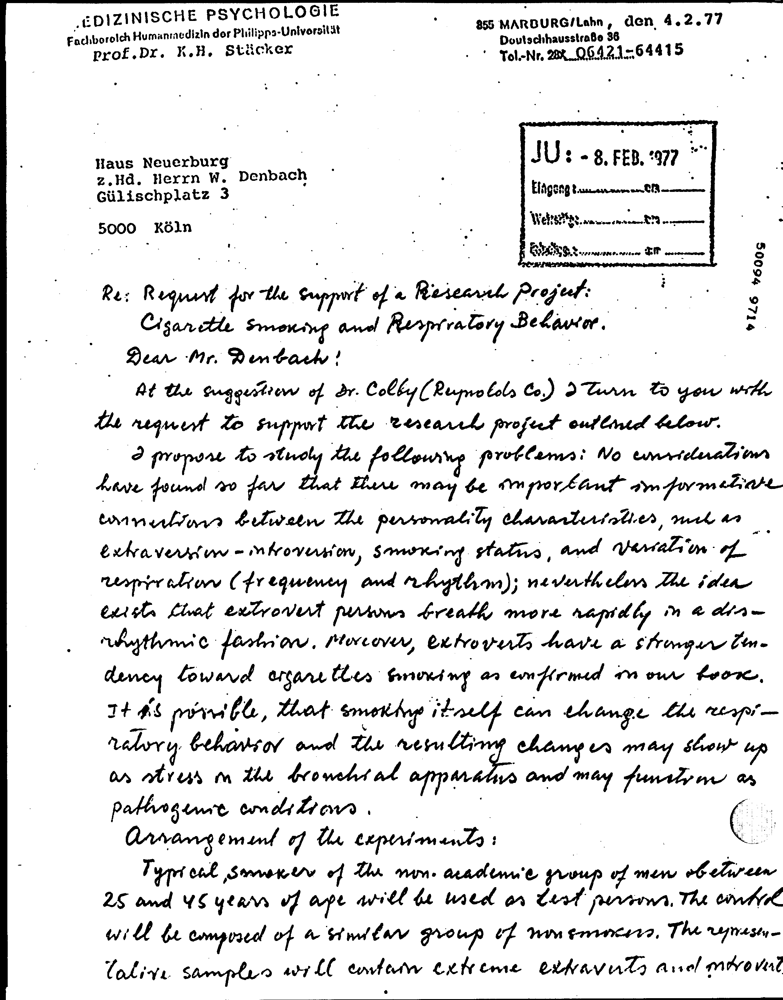 MEDIZINISCHE PSYCHOLOGIE
Fachbereich Humanmedizin der Philipps-Universität
Prof.Dr. K.H. Stäcker
355 MARBURG/Lahn, den 4.2.77
Deutschhausstraße 36
Tel.-Nr. 06421-64415
Haus Neuerburg
z.Hd. Herrn W. Denbach
Gülischplatz 3
5000 Köln
JU: - 8. FEB. 1977
50094 9714
Re: Request for the support of a Research Project:
Cigarette smoking and Respiratory Behavior.
Dear Mr. Denbach!
At the suggestion of Dr. Colby (Reynolds Co.) I turn to you with
the request to support the research project outlined below.
I propose to study the following problems: No considerations
have found so far that there may be important informative
connections between the personality characteristics, such as
extraversion-introversion, smoking status, and variation of
respiration (frequency and rhythm); nevertheless the idea
exists that extrovert persons breath more rapidly in a dis-
rhythmic fashion. Moreover, extroverts have a stronger ten-
dency toward cigarettes smoking as confirmed in our book.
It is possible, that smoking itself can change the respi-
ratory behavior and the resulting changes may show up
as stress on the bronchial apparatus and may function as
pathogenic conditions.
Arrangement of the experiments:
Typical smoker of the non-academic group of men between
25 and 45 years of age will be used as test persons. The control
will be composed of a similar group of nonsmokers. The represen-
tative samples will contain extreme extraverts and introvert